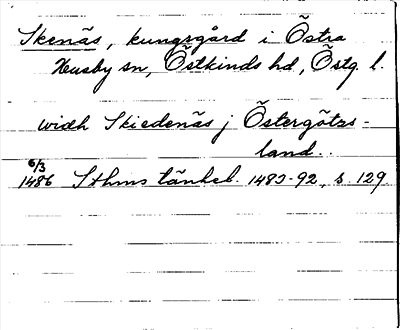 Skenäs, kungsgård i Östra
Husby sn, Östkinds hd, Östg. l.
widh Skiedenäs j Östergötzs-
land..
6/3
1486 Sthms tänkeb. 1483-92, s. 129.